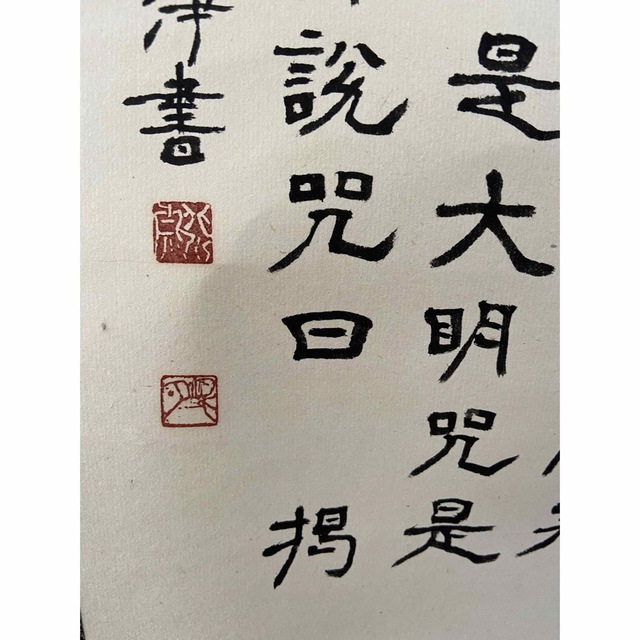 是大明咒是
說咒曰揭
淨書